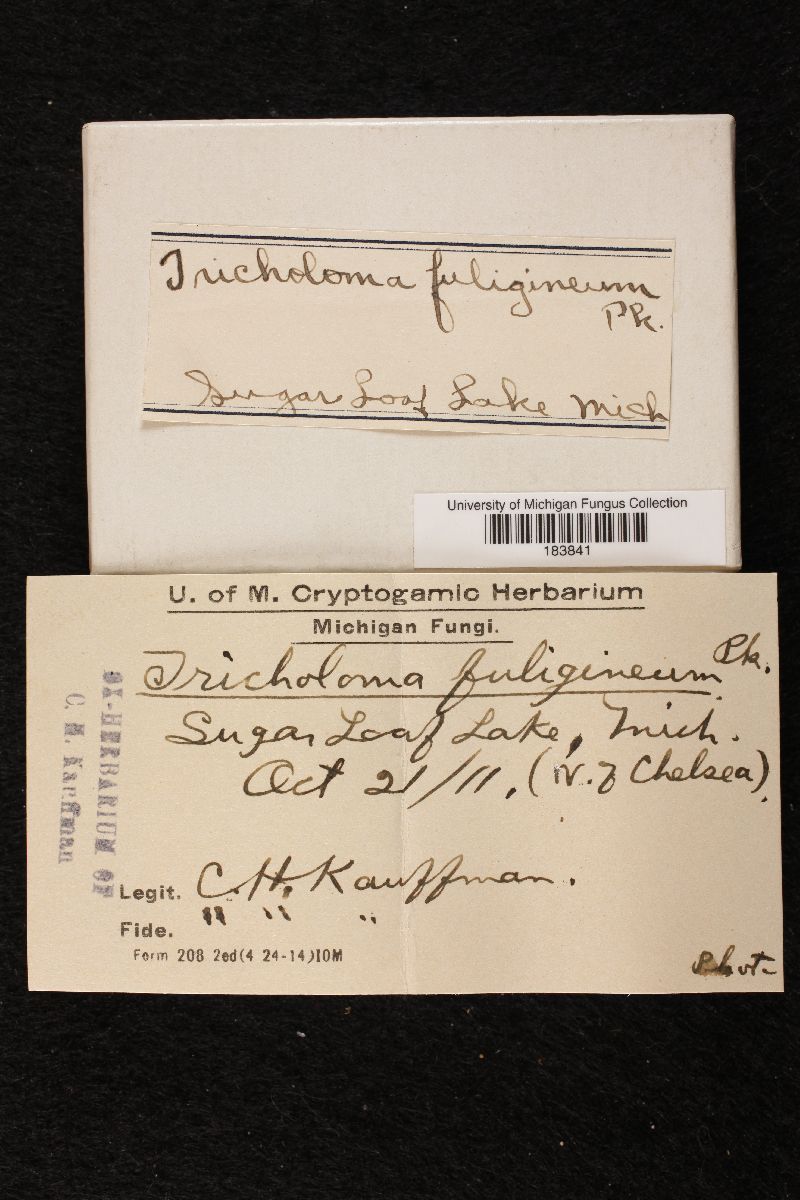 Tricholoma fuligineum
Pk.
Sugar Loaf Lake Mich
University of Michigan Fungus Collection
183841
U. of M. Cryptogamic Herbarium
Michigan Fungi.
Tricholoma fuligineum Pk.
Sugar Loaf Lake, Mich.
Oct 21/11. (W. of Chelsea).
EX-HERBARIUM OF
C. H. Kauffman
Legit. C. H. Kauffman.
Fide. " " "
Form 208 2ed(4 24-14)10M
Phot-